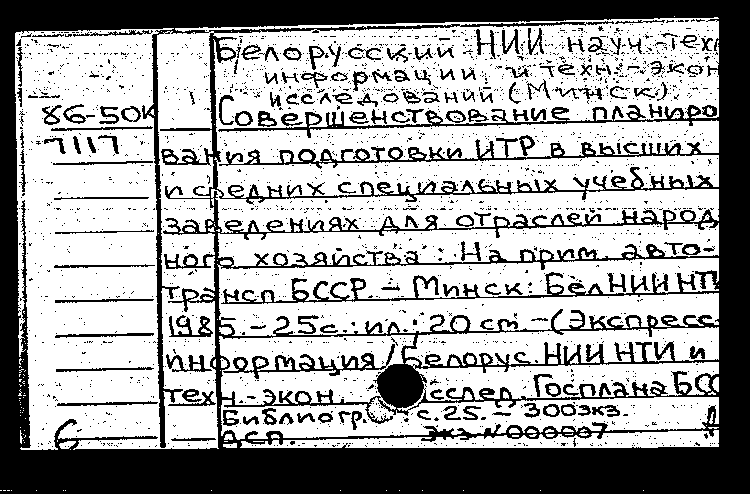 Белорусский НИИ науч.-тех
информации и техн.-экон
исследований (Минск).
86-50К Совершенствование планиро
7117 вания подготовки ИТР в высших
и средних специальных учебных
заведениях для отраслей народ
ного хозяйства : На прим. авто-
трансп. БССР. – Минск: БелНИИНТИ
1985. – 25с.: ил.; 20 cm. – (Экспресс-
информация / Белорус. НИИ НТИ и
техн.-экон. исслед. Госплана БСС
Библиогр.: с.25. – 300экз.
6 ДСП. экз N 000007